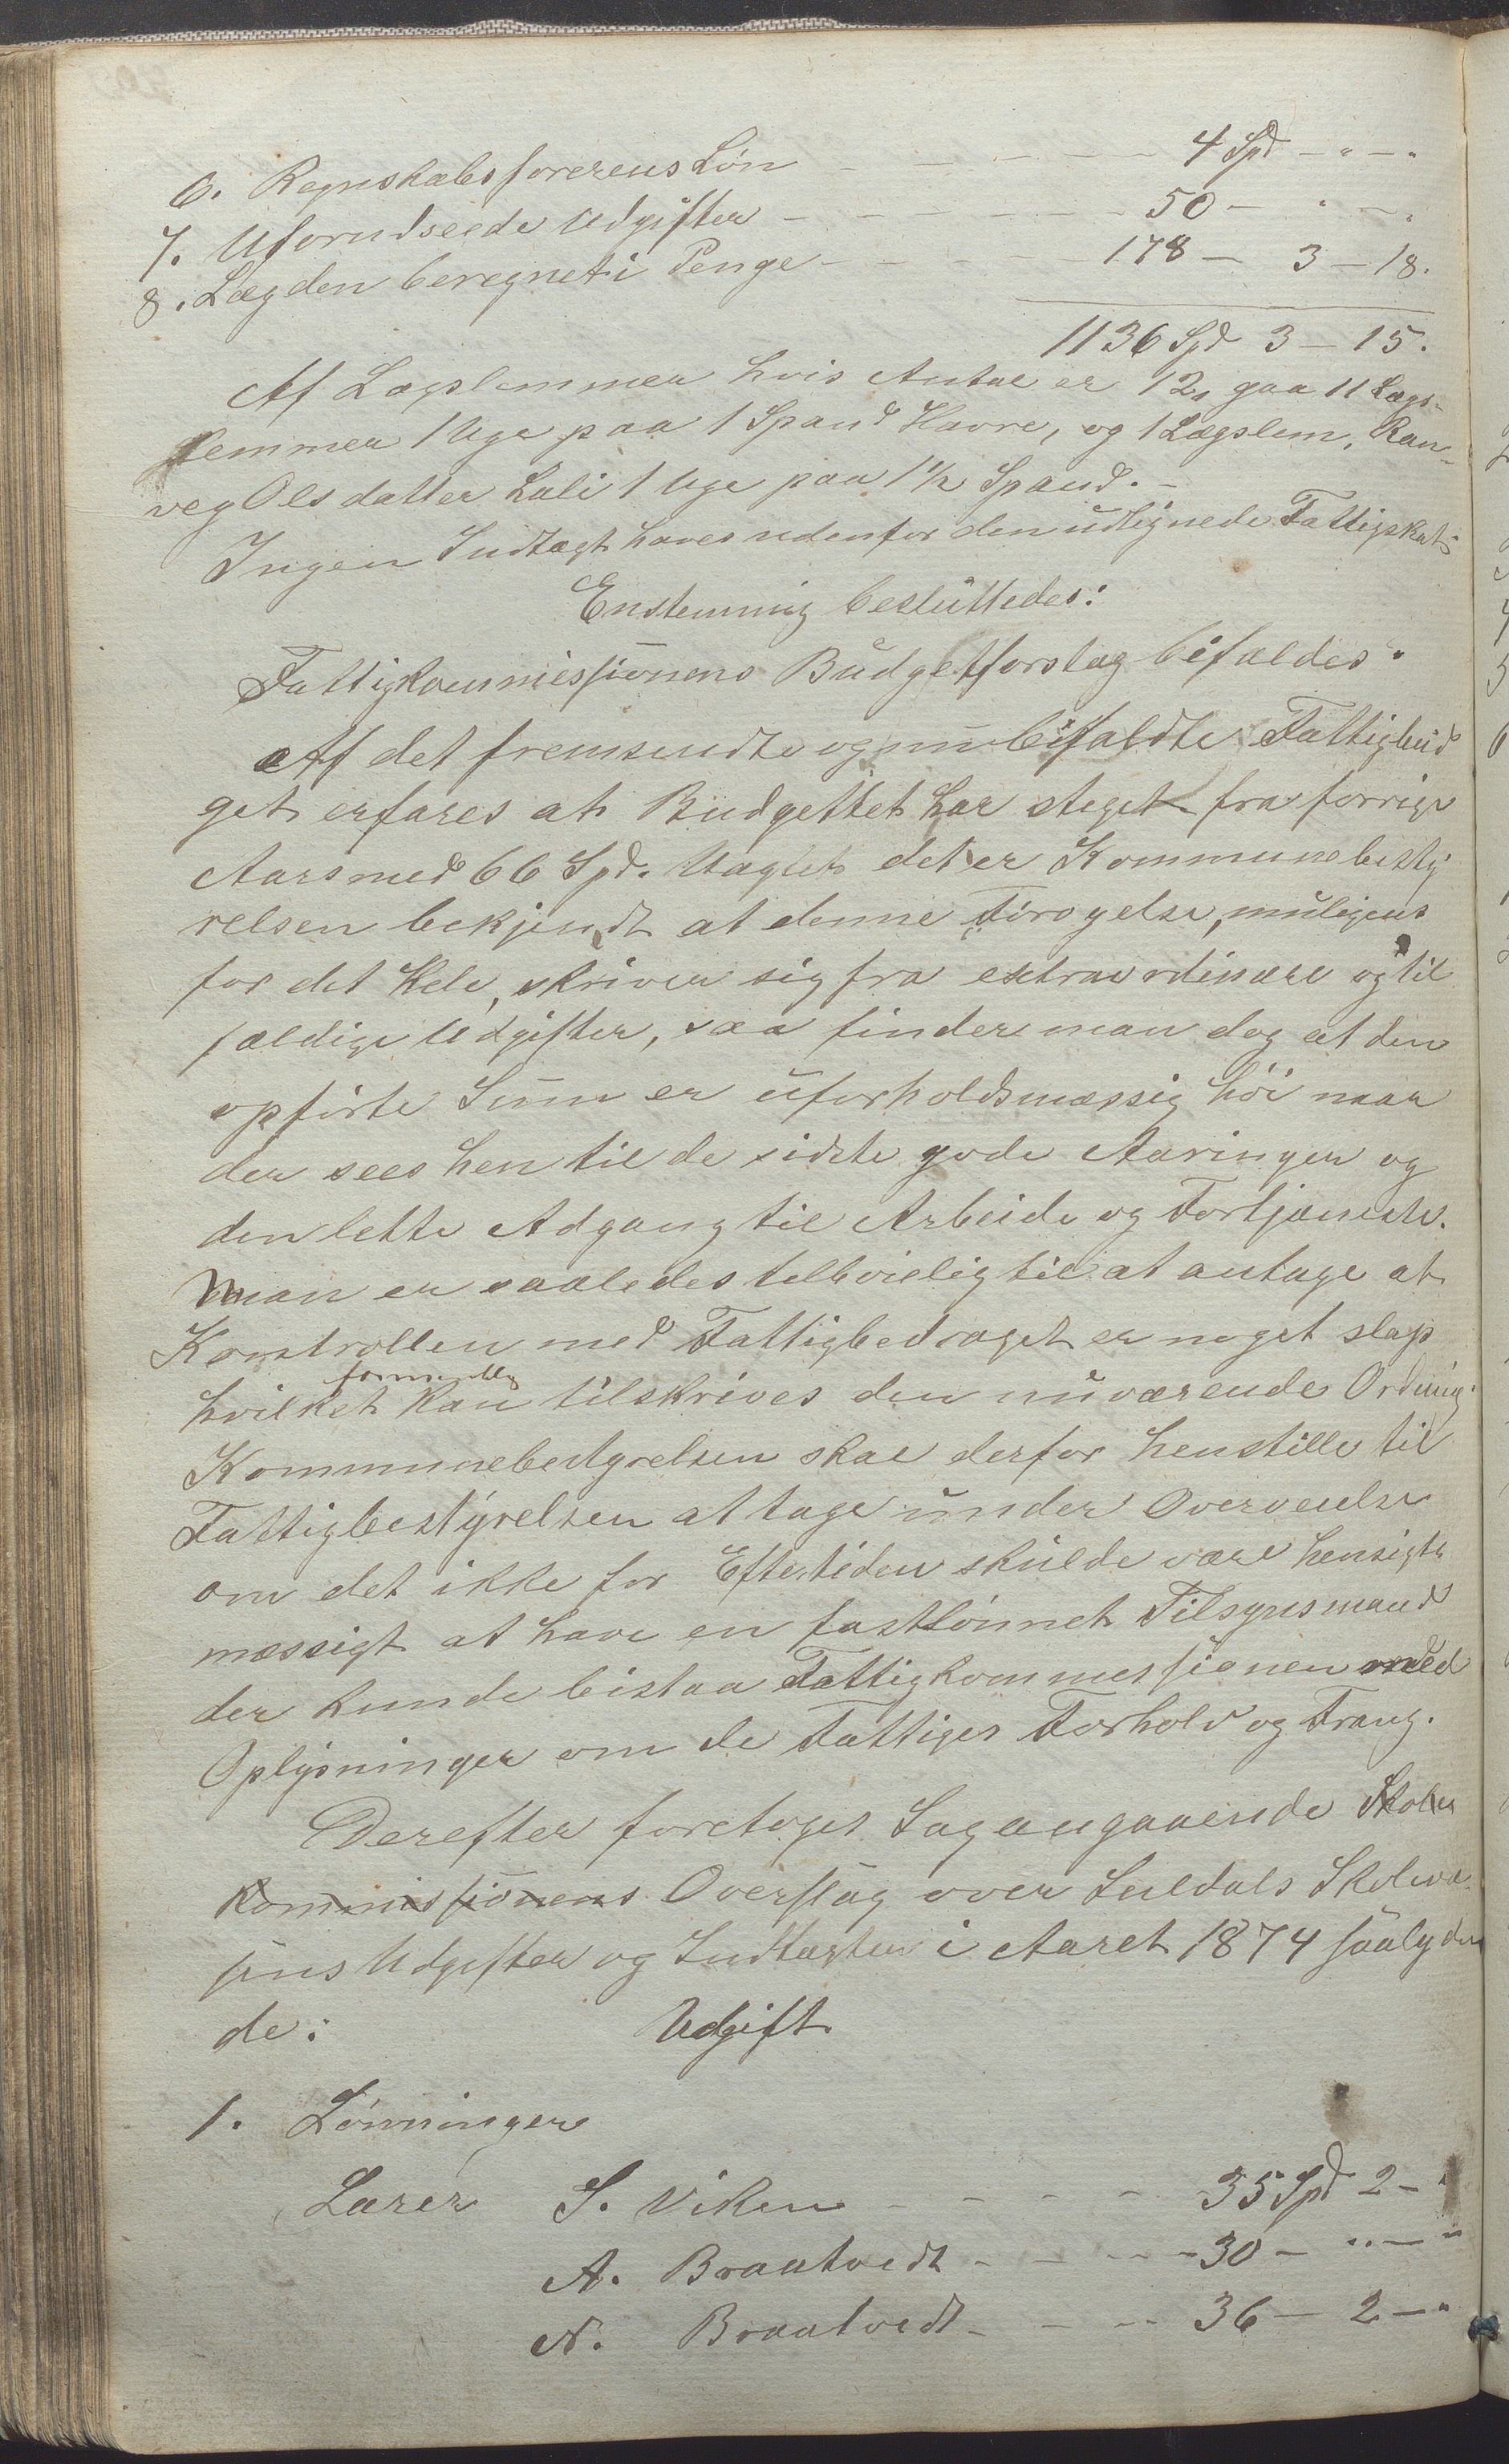 6. Regnskabsførerens Løn - - - - - 4 Spd - " - "
7. Uforudseede Udgifter - - - - - 50 - " - "
8. Lægden beregnet i Penge - - - - 178 - 3 - 18.
1136 Spd 3 - 15.
Af Lægslemmer hvis Antal er 12, gaa 11 Lægs-
lemmer 1 Uge paa 1 Spand Havre, og 1 Lægslem, Ran-
veg Olsdatter Lali 1 Uge paa 1 1/2 Spand. -
Ingen Indtægt haves udenfor den udlignede Fattigskat.
Enstemmig besluttedes:
Fattigkommissionens Budgetforslag bifaldes.
Af det fremsendte og nu bifaldte Fattigbud
get erfares at Budgettet har steget fra forrige
Aars med 66 Spd. Uagtet det er Kommunebesty
relsen bekjendt at denne Forøgelse, muligens
for det Hele, skriver sig fra extraordinære og til
fældige Udgifter, saa finder man dog at den
opførte Sum er uforholdsmæssig høi naar
der sees hen til de sidste gode Aaringer og
den lette Adgang til Arbeide og Fortjeneste.
Man er saaledes tilbøielig til at antage at
Kontrollen med Fattigbedraget er noget slap
hvilket kan tilskrives den nuværende Ordning.
Kommunebestyrelsen skal derfor henstille til
Fattigbestyrelsen at tage under Overveielse
om det ikke for Eftertiden skulde være hensigts
mæssigt at have en fastlønnet Tilsynsmand
der kunde bistaa Fattigkommissionen med
Oplysninger om de Fattiges Forhold og Trang.
Derefter foretoges Sag angaaende Skole
kommissionens Overslag over Suldals Skolevæ
sens Udgifter og Indtægter i Aaret 1874 saalyden
de: Udgift.
1. Lønninger
Lærer S. Viken - - - - 35 Spd 2 - "
A. Braatvedt - - - - 30 - " - "
N. Braatvedt - - - 36 - 2 - "